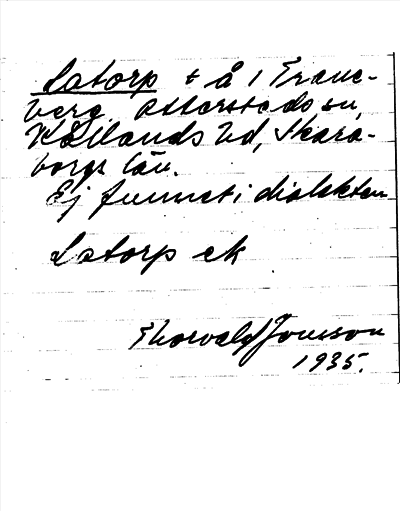 Latorp t å i Trane-
berg, Otterstads sn,
Kållands hd, Skara-
borgs län.
Ej funnet i dialekten
Latorp ek
Thorvald Jonsson
1935.